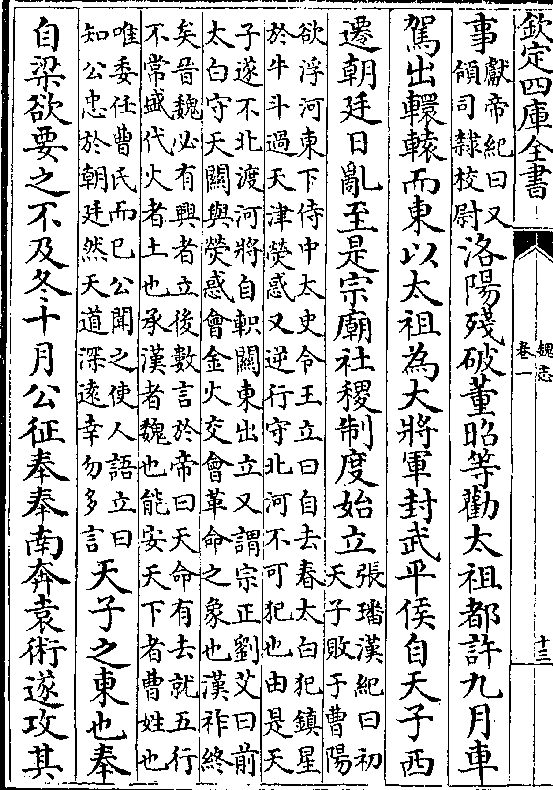 欽定四庫全書
魏志
卷一
十三
事
獻帝紀曰又
領司隸校尉
洛陽殘破董昭等勸太祖都許九月車
駕出轘轅而東以太祖為大將軍封武平侯自天子西
遷朝廷日亂至是宗廟社稷制度始立
張璠漢紀曰初
天子敗于曹陽
欲浮河東下侍中太史令王立曰自去春太白犯鎮星
於牛斗過天津熒惑又逆行守北河不可犯也由是天
子遂不北渡河將自軹關東出立又謂宗正劉艾曰前
太白守天關與熒惑會金火交會革命之象也漢祚終
矣晉魏必有興者立後數言於帝曰天命有去就五行
不常盛代火者土也承漢者魏也能安天下者曹姓也
唯委任曹民而已公聞之使人語立曰
知公忠於朝廷然天道深遠幸勿多言
天子之東也奉
自梁欲要之不及冬十月公征奉奉南奔袁術遂攻其